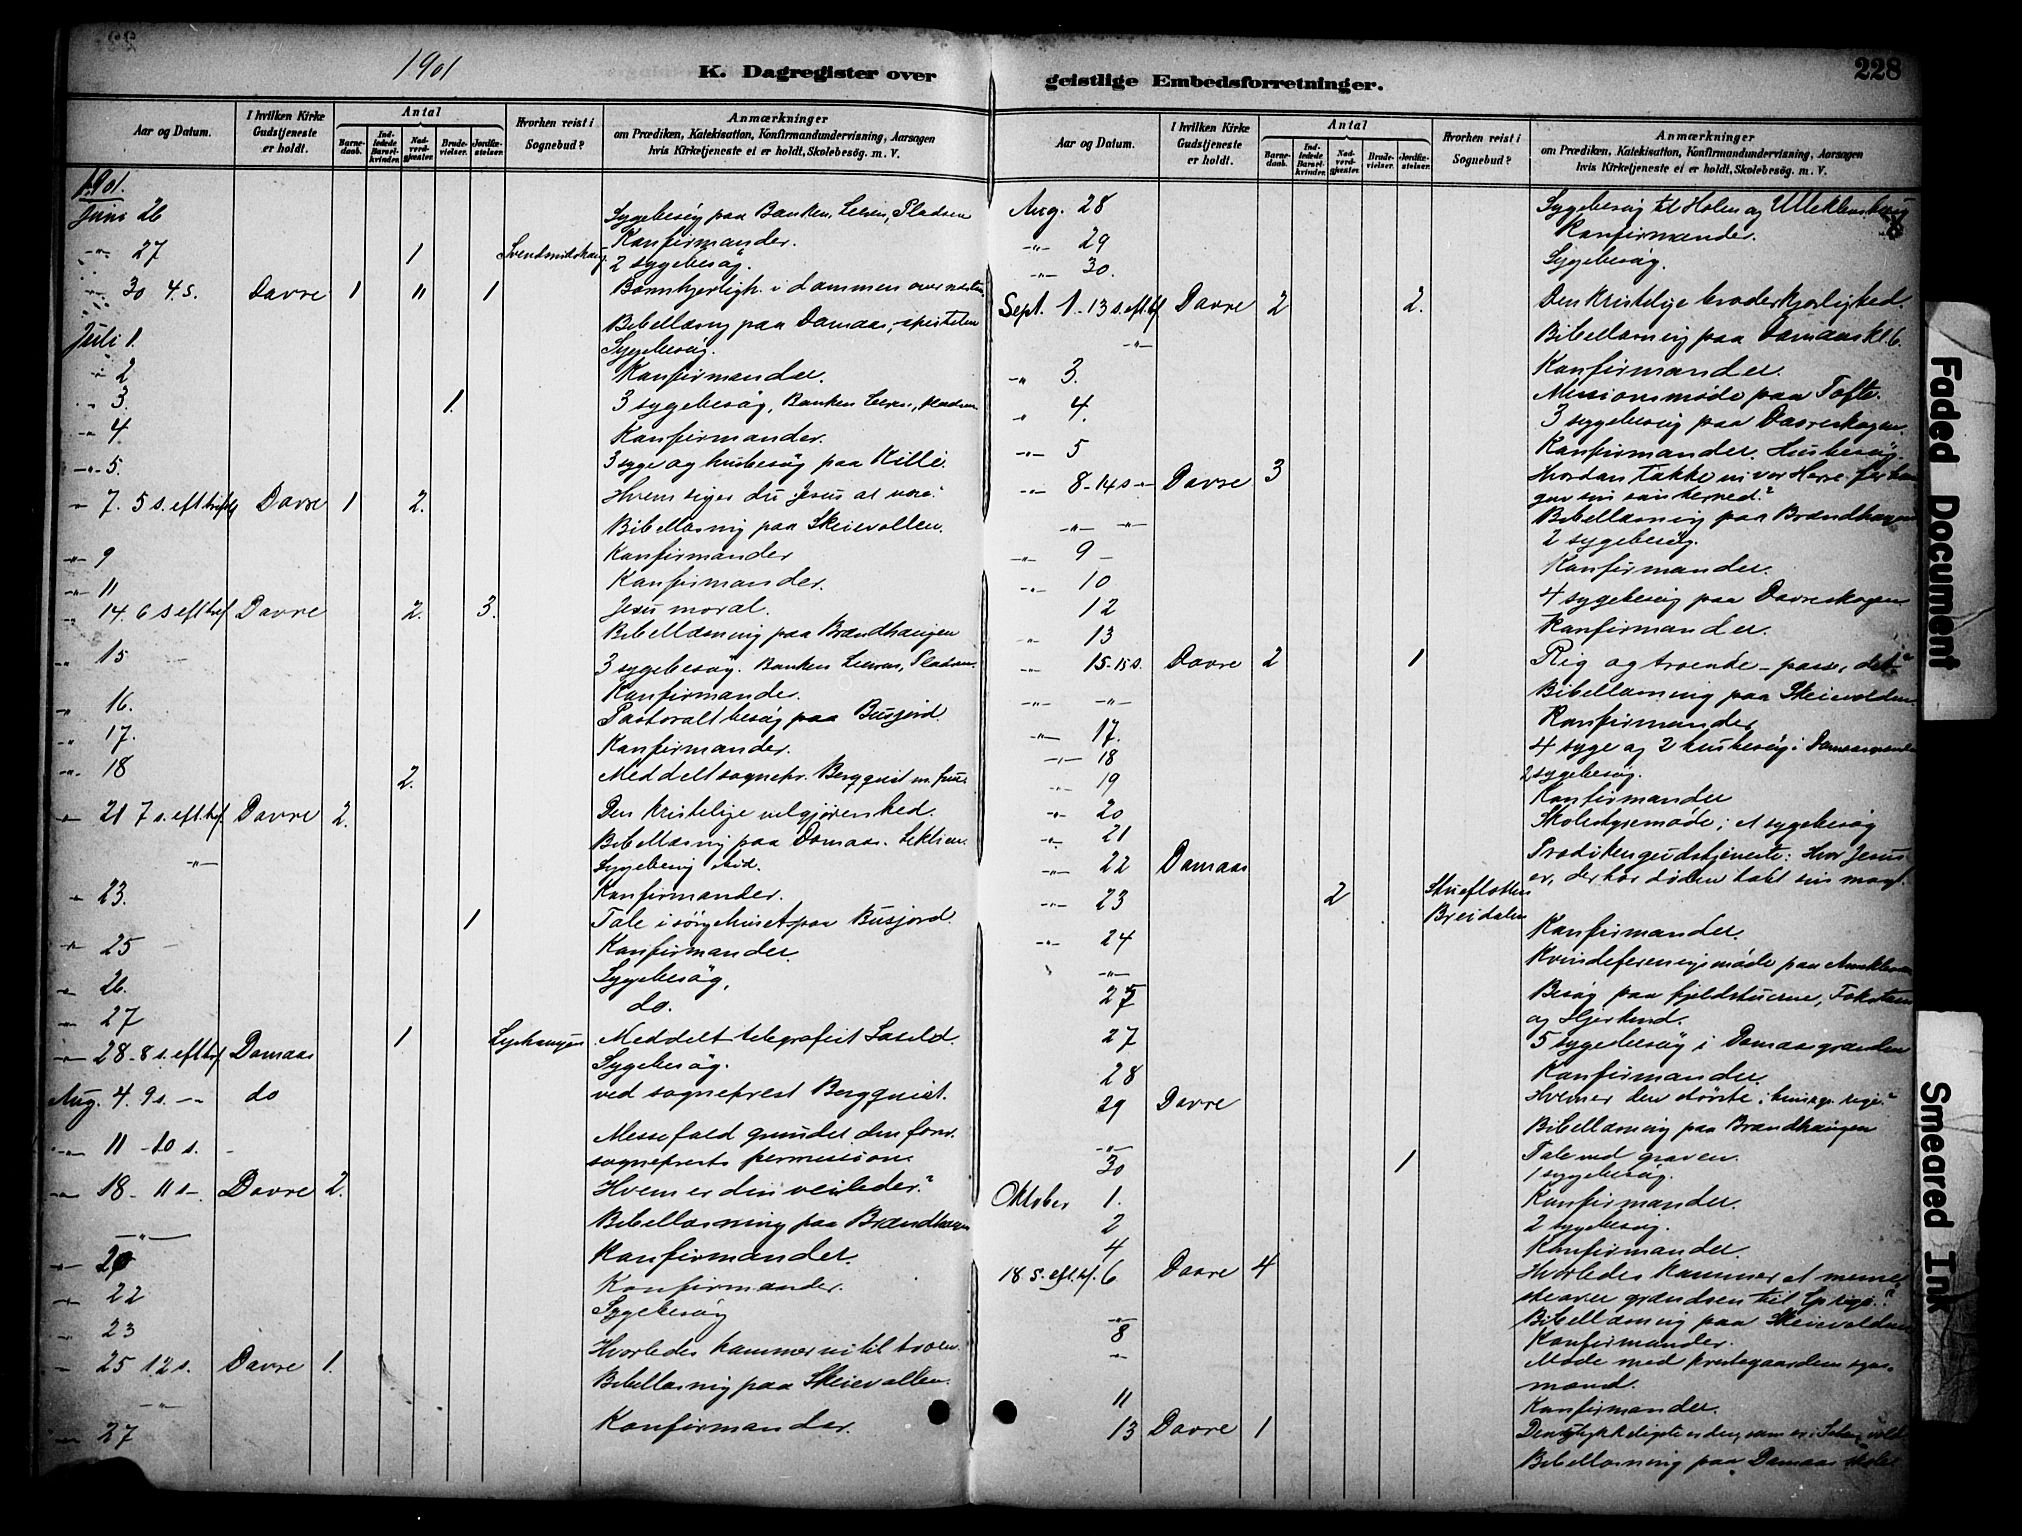 1901
K. Dagregister over
geistlige Embedsforretninger.
228
Aar og Datum.
I hvilken Kirke Gudstjeneste er holdt.
Antal
Barnedaab.
Indledede Barselkvinder.
Nadverdgjester.
Brudevielser.
Jordfæstelser.
Hvorhen reist i Sognebud?
Anmærkninger
om Prædiken, Katekisation, Konfirmandundervisning, Aarsagen
hvis Kirketjeneste ei er holdt, Skolebesög. m. V.
1901.
Juni 26 Sygebesög paa Banken, Pladsen
Konfirmander.
" 27 1 2 sygebesög.
" 30 4.s. Davre 1 " 1 i dommen over næsten
Bibellæsning paa Domaas, epistelen
Juli 1. Sygebesög.
" 2 Konfirmander.
" 3. 1. 3 sygebesög, Banken
" 4. Konfirmander.
" 5. 3 syge og husbesög paa Killi.
" 7. 5 s. eft. Davre 1 2. Hvem siger du Jesus at være?
Bibellæsning paa Skeievollen.
" 9 Konfirmander
" 11 Konfirmander.
" 14. 6 s eft tref. Davre 2. 3. Jesu moral.
Bibellæsning paa Brændhaugen
" 15 3 sygebesög. Banken Pladsen.
" 16. Konfirmander.
" 17. Pastoralt besög paa Busjord.
Konfirmander.
" 18 2. Meddelt sognepr. Bergquist m. frue
" 21 7 s. eft. tref. Davre 2. Den kristelige velgjörenhed.
" Bibellæsning paa Domaas.
Sygebesög
" 23. Konfirmander.
1 Tale i sörgehuset paa Busjord.
" 25 Konfirmander.
" 26. Sygebesög,
" 27 do.
" 28 - 8 s. eft tref Domaas 1 Meddelt telegrafist
Sygebesög.
Aug. 4. 9 s. - " do ved sogneprest Bergquist.
" 11 - 10 s. - Messefald grundet den forr.
sogneprests permission.
" 18 - 11 s -. Davre 2. Hvem er din veileder?
" Bibellæsning paa Brændhaugen
" 20 Konfirmander.
" 22 Konfirmander.
" 23 Sygebesög
" 25 12 s. Davre 1. Hvorledes kommer vi til troen.
" Bibellæsning paa Skeievollen.
" 27 Konfirmander.
Aar og Datum.
I hvilken Kirke Gudstjeneste er holdt.
Antal
Barnedaab.
Indledede Barselkvinder.
Nadverdgjester.
Brudevielser.
Jordfæstelser.
Hvorhen reist i Sognebud?
Anmærkninger
om Prædiken, Katekisation, Konfirmandundervisning, Aarsagen
hvis Kirketjeneste ei er holdt, Skolebesög. m. V.
Aug. 28 Sygebesög til Holen og
" 29 Konfirmander.
" 30. Sygebesög.
Sept. 1 - 13 s. eft. tref Davre 2 2. Den kristelige broderkjærlighed.
" Bibellæsning paa Domaas kl 6.
" 3. Konfirmander.
" 4. Missionsmöde paa Tofte.
3 sygebesög paa Davreskogen.
" 5 Konfirmander. Husbesög.
" 8 - 14 s - Davre 3 Hvordan takke vi vor Herre for
" " Bibellæsning paa Brændhaugen
" 9 - 2 sygebesög.
" 10 Konfirmander.
12 4 sygebesög paa Davreskogen
" 13 Konfirmander.
" 15 - 15 s. Davre 2 1 Rig og troende - passer det?
" " Bibellæsning paa Skeievolden.
" 17. Konfirmander
" 18 4 syge og 2 husbesög i
" 19 2 sygebesög.
" 20 Konfirmander
" 21 Skolestyremöde; et sygebesög
" 22 Domaas Prædikengudstjeneste: Hvor Jesus
er, der har döden tabt sin magt.
" 23 2
Breidalen
" 24 Konfirmander.
" Kvindeforeningsmöde paa
25 Besög paa fjeldstuerne, Fokstuen
og Hjerkind.
27 5 sygebesög i Domaasgrænden
28 Konfirmander.
29 Davre Hvem er den störste i himlenes rige?
" Bibellæsning paa Brændhaugen
30 1 Tale ved graven.
1 sygebesög.
Oktober 1. Konfirmander.
2 2 sygebesög.
4 Konfirmander.
18 s. eft. tref. 6 Davre 4 Hvorledes kommer et menne
ske over grændsen til
" Bibellæsning paa Skeievolden
8 Konfirmander.
" Möde med prestegaardens
mænd.
11 Konfirmander.
13 Davre 1 Den lykkeligste er den, som er i
Bibellæsning paa Domaas
Faded Document
Smeared Ink